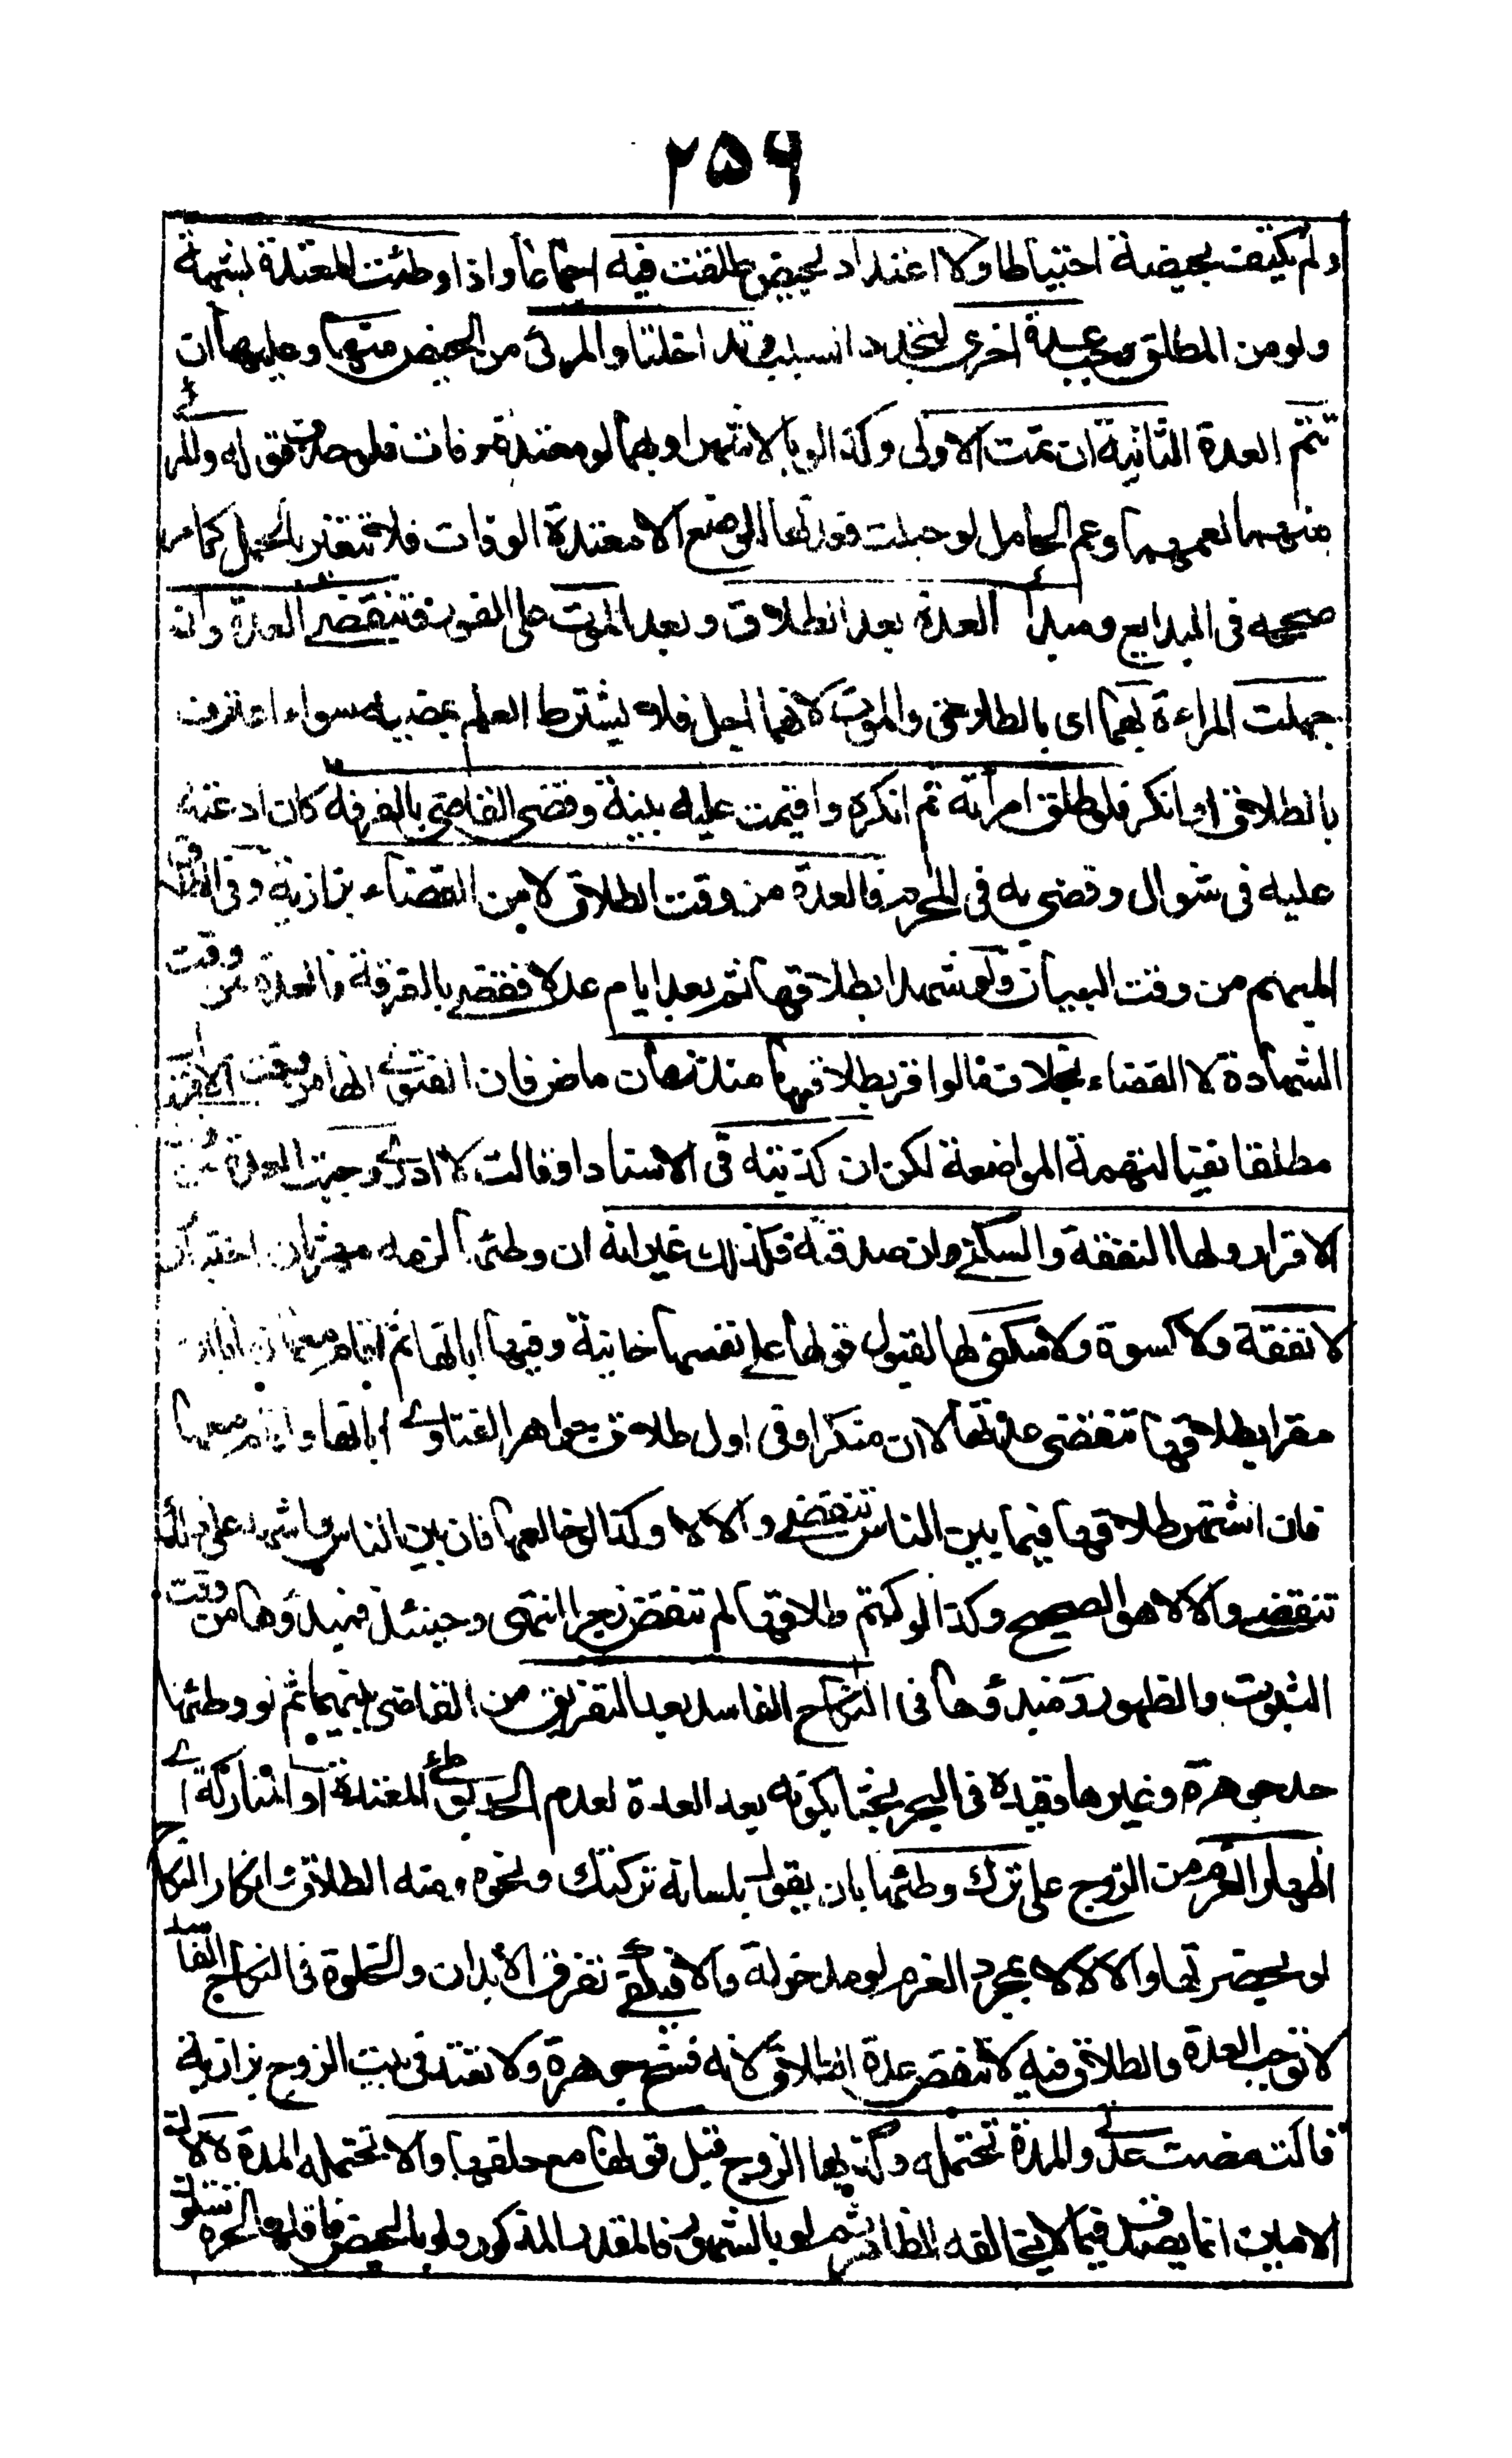 ٢٥٦
ولم يكتف بحيضة احتياطا ولا اعتداد لحيض طلقت فيه اجماعا واذا وطئت المعتدة بشبهة
ولو من المطلق وجب عدة اخرى لتجدد السبب وتداخلتا والمرئى من الحيض منهما وعليها ان
تتم العدة الثانية ان تمت الاولى وكذا لو بالاشهر او بهما لو معتدة وفات فلو حذف قوله والمرئ
منهما لعمهما وعم الحامل لو حبلت فعدتها الوضع الا معتدة الوفات فلا تتغير بالحمل كما مر
صححه فى البدايع ومبدأ العدة بعد الطلاق وبعد الموت على الفور فتنقضے العدة وان
جهلت المراءة بهما اى بالطلاق والموت لانهما اجل فلا يشترط العلم بمضيه سواء اعترف
بالطلاق او انكر فلو طلق امرأته ثم انكره واقيمت عليه بينة وقضى القاضى بالفرقه كان ادعته
عليه فى شوال وقضى به فى المحرم فالعدة من وقت الطلاق لا من القضاء بزازية وفى الطلاق
المبهم من وقت البيان ولو شهدا بطلاقها ثم بعد ايام عدلا فقضے بالفرقة فالعدة من وقت
الشهادة لا القضاء بخلاف مالوا قر بطلاقها منذ زمان ماض فان الفتوے انها من وقت الاقرار
مطلقا نفيا لتهمة المواضعة لكن ان كذبته فى الاسناد او قالت لا ادرى وجبت العدة من
الاقرار ولها النفقة والسكنے وان صدقته فكذلك غير انه ان وطئها لزمه مهر ثان اختيار
لا نفقة ولا كسوة ولا سكنى لها لقبول قولها على نفسها خانية وفيها ابانها ثم اقام معها زمانا ان
مقرا بطلاقها تنقضى عدتها لا ان منكرا وفى اول طلاق جواهر الفتاوے ابانها واقام معها
فان اشتهر طلاقها فيما بين الناس تنقضے والا لا وكذا لو خالعها فان بين الناس واشهد على ذلك
تنقضے والا لا هو الصحيح وكذا لو كتم طلاقها لم تنقض زجرا انتهى وحينئذ فمبدؤها من وقت
الثبوت والظهور ومبدؤها فى النكاح الفاسد بعد التفريق من القاضى بينهما ثم لو وطئها
حد جوهرة وغيرها وقيده فى البحر بحثا بكونه بعد العدة لعدم الحد بوطئ المعتدة او المتاركة اے
اظهار العزم من الزوج على ترك وطئها بان يقول بلسانه تركتك ونحوه ومنه الطلاق وانكار النكاح
لو بحضرتها والا لا لا بمجرد العزم لو مدخولة والا فيكفے تفرق الابدان والخلوة فى النكاح الفاسد
لا توجب العدة والطلاق فيه لا ينقض عدة الطلاق لانه فسخ جوهرة ولا تعتد فى بيت الزوج بزازية
قالت مضت عدتے والمدة تحتمله وكذبها الزوج قبل قولها مع حلفها والا تحتمله المدة لا لان
الامين انما يصدق فيما لا يخالفه الظاهر ثم لو بالشهور فالمقدر المذكور ولو بالحيض فاقلها لحرة ستون